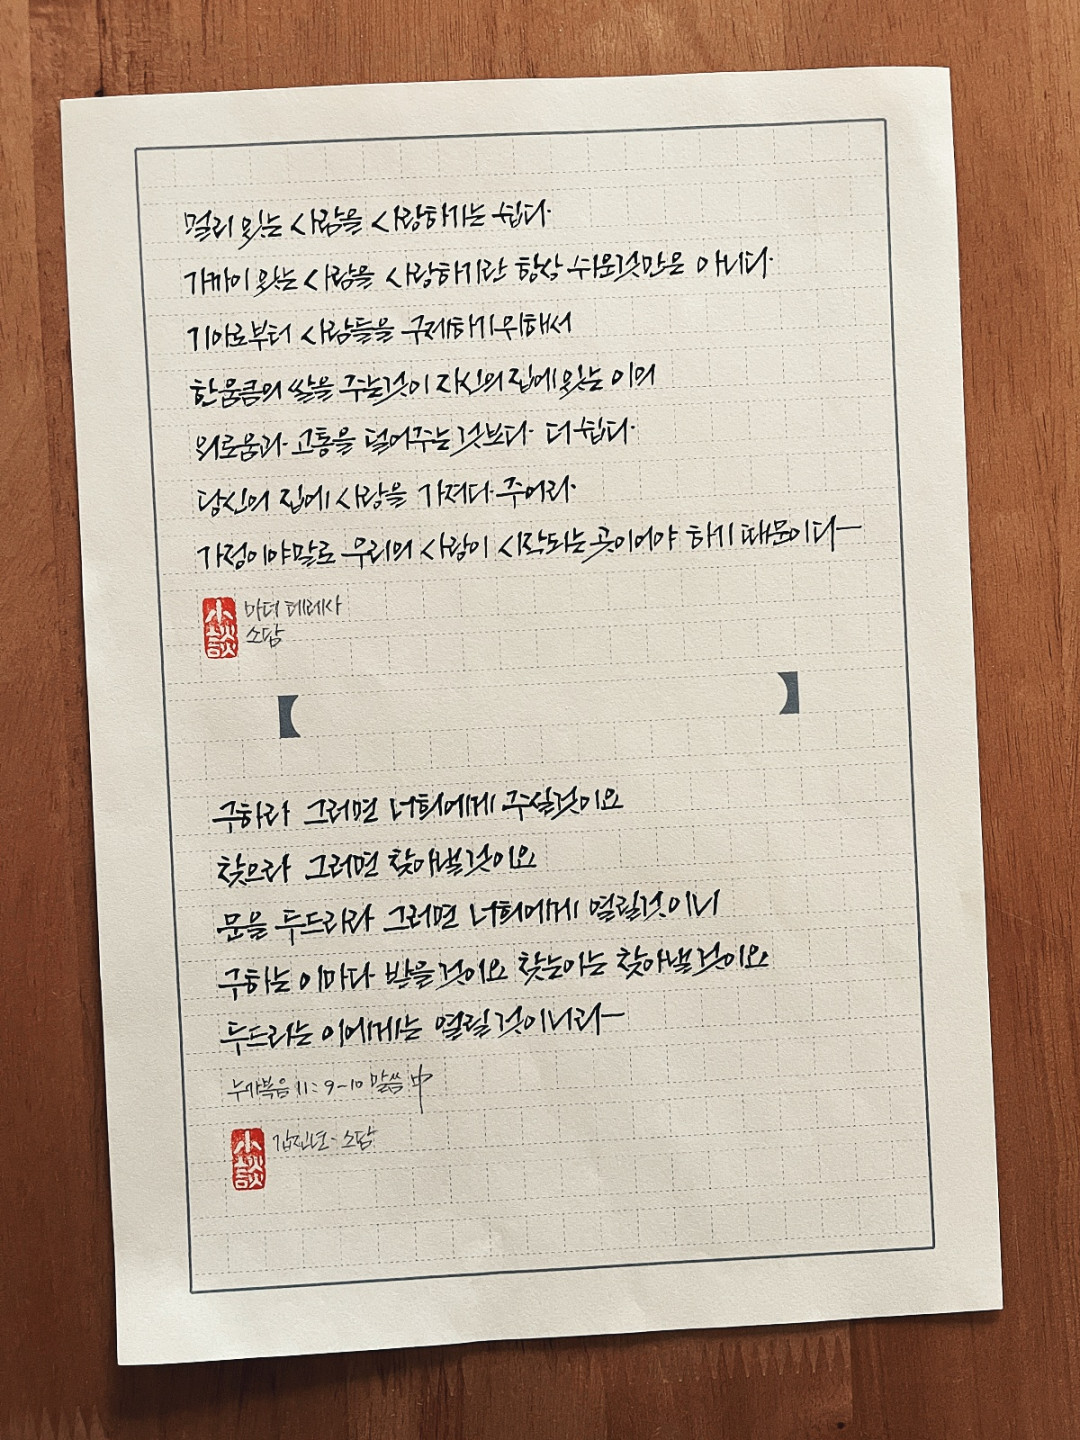 멀리 있는 사람을 사랑하기는 쉽다.
가까이 있는 사람을 사랑하기란 항상 쉬운것만은 아니다.
기아로부터 사람들을 구제하기위해서
한움큼의 쌀을 주는것이 자신의 집에있는 이의
외로움과 고통을 덜어주는것보다 더 쉽다.
당신의 집에 사랑을 가져다 주어라.
가정이야말로 우리의 사랑이 시작되는 곳이어야 하기 때문이다—
小談 마더 테레사
소담
구하라 그러면 너희에게 주실것이요
찾으라 그러면 찾아낼것이요
문을 두드리라 그러면 너희에게 열릴것이니
구하는 이마다 받을것이요 찾는이는 찾아낼것이요
두드리는 이에게는 열릴것이니라—
누가복음 11:9-10 말씀 中
小談 갑진년. 소담